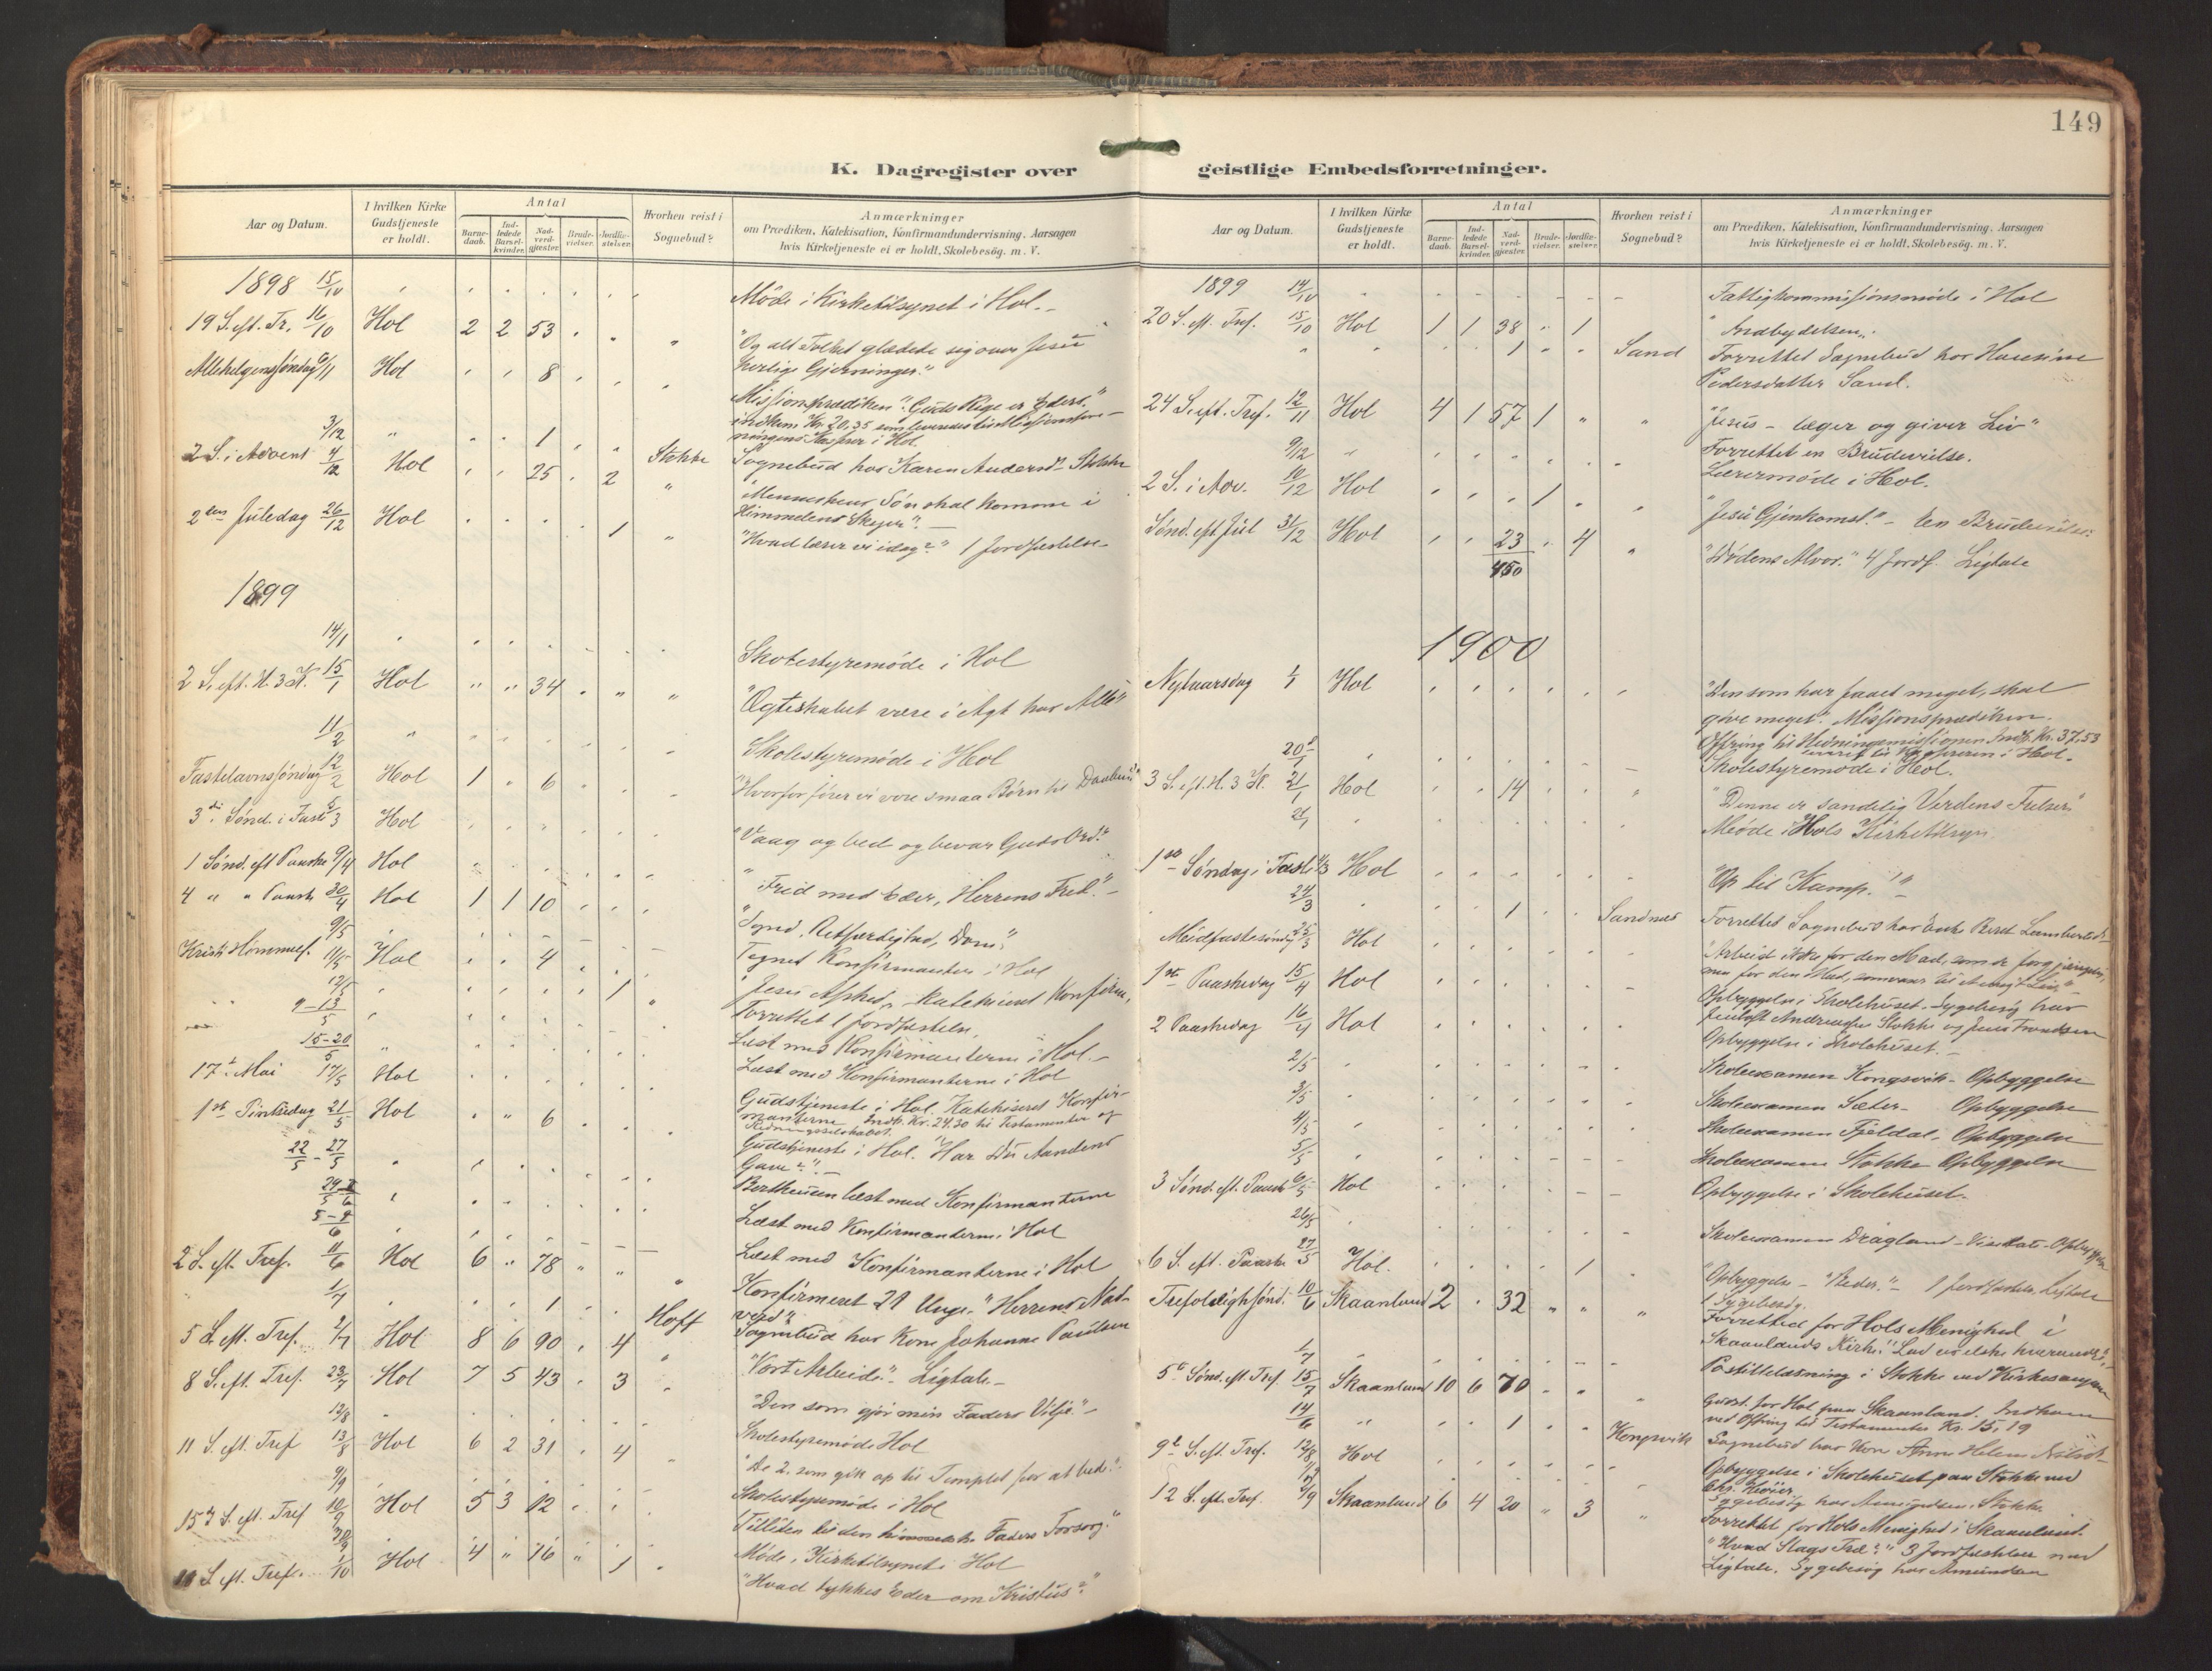 149
K. Dagregister over geistlige Embedsforretninger.
Aar og Datum.
I hvilken Kirke Gudstjeneste er holdt.
Antal
Barne-daab.
Ind-ledede Barsel-kvinder.
Nad-verd-gjester.
Brude-vielser.
Jordfæ-stelser.
Hvorhen reist i Sognebud?
Anmærkninger
om Prædiken, Katekisation, Konfirmandundervisning, Aarsagen
hvis Kirketjeneste ei er holdt, Skolebesög, m. V.
1898 15/10 Möde i Kirketilsynet i Hol.
19 S. eft. Tr. 16/10 Hol 2 2 53 "Og alt Folket glædede sig over Jesu
herlige Gjerninger."
Allehelgenssöndag 6/11 Hol 8 Missionsprædiken". "Guds Rige er
indkom Kr. 20,35 som
Kasserer i Hol.
3/12 1 Stokke Sognebud hos Karen Andersd. Stokke
2 S. i Advent 4/12 Hol 25 2 Menneskens Sön skal komme i
Himmelens Skyer".
2den Juledag 26/12 Hol 1 "Hvad lærer vi idag?" 1 Jordfæstelse
1899
14/1 Skolestyremöde i Hol
2 S. eft. H. 3 K. 15/1 Hol 34 "Ægteskabet være i Agt hos Alle"
11/2 Skolestyremöde i Hol
Fastelavnssöndag 12/2 Hol 1 6 "Hvorfor förer vi vore smaa Börn til Daaben?"
3die Sönd. i Faste 5/3 Hol "Vaag og bed og bevar Guds Ord."
1 Sönd. eft Paaske 9/4 Hol "Fred med Eder, Herrens Fred."
4 " " Paaske 30/4 Hol 1 1 10 "Synd, Retfærdighed, Dom"
9/5 Tegnet Konfirmanter i Hol
Kristi Himmelf. 11/5 Hol 4 "Jesu Afsked" - Katekiseret Konfirm.
12/5 1 Forrettet 1 Jordfæstelse.
9-13/5 Læst med Konfirmanterne i Hol.
15-20/5 Læst med Konfirmanterne i Hol
17de Mai 17/5 Hol Gudstjeneste i Hol. Katekiseret Konfir-
manterne Indk. Kr. 24.30 til Testamenter og
Redningsselskabet.
1ste Pintsedag 21/5 Hol 6 Gudstjeneste i Hol. "Har Du Aandens
Gave?".
22/5 - 27/5 Bertheusen læst med Konfirmanterne
Læst med Konfirmanterne i Hol
5-9/6 Læst med Konfirmanterne i Hol
2 S. eft. Tref. 11/6 Hol 6 78 Konfirmeret 21 Unge. "Herrens Nad-
verd".
1/7 1 Hoft Sognebud hos Kone Johanne Paulsen
5 S. eft. Tref. 2/7 Hol 8 6 90 4 "Vort Arbeide". Ligtale.
8 S. eft. Tref. 23/7 Hol 7 5 43 3 "Den som gjör min Faders Vilje."
12/8 Skolestyremöde Hol
11 S. eft. Tref 13/8 Hol 6 2 31 4 "De 2, som gik op til Templet for at bede."
9/9 Skolestyremöde i Hol
15de S. eft. Tref 10/9 Hol 5 3 12 "Tilliten til den himmelske Faders Forsorg."
Möde i Kirketilsynet i Hol
S. eft. Tref. 1/10 Hol 4 " 76 1 "Hvad tykkes Eder om Kristus?"
Aar og Datum.
I hvilken Kirke Gudstjeneste er holdt.
Antal
Barne-daab.
Ind-ledede Barsel-kvinder.
Nad-verd-gjester.
Brude-vielser.
Jordfæ-stelser.
Hvorhen reist i Sognebud?
Anmærkninger
om Prædiken, Katekisation, Konfirmandundervisning, Aarsagen
hvis Kirketjeneste ei er holdt, Skolebesög, m. V.
1899 14/10 Fattigkommissionsmöde i Hol
20 S. eft. Tref. 15/10 Hol 1 1 38 1 "Indbydelsen".
1 Sand Forrettet Sognebud hos
Pedersdatter Sand.
24 S. eft. Tref. 12/11 Hol 4 1 57 1 "Jesus - læger og giver Liv"
Forrettet en Brudevielse.
9/12 Lærermöde i Hol.
2 S. i Adv. 10/12 Hol 1 "Jesu Gjenkomst." - En Brudevielse.
Sönd. eft Jul 31/12 Hol 23 4 "Dödens Alvor." 4 Jordf. Ligtale
450
1900
Nytaarsdag 1/1 Hol "Den som har faaet meget, skal
give meget". Missionsprædiken.
Ofring til Hedningemissionen Indk. Kr. 37,53
leveret til Kassereren i Hol.
20/1 Skolestyremöde i Hol.
3 S. eft. H. 3 K. 21/1 Hol 14 "Denne er sandelig Verdens Frelser"
21/1 Möde i Hols Kirketilsyn.
1ste Söndag i Faste 4/3 Hol "Op til Kamp!"
24/3 1 Sandnes Forrettet Sognebud hos Enke Beret Lambertsd.
Midfastesöndag 25/3 Hol "Arbeid ikke for den Mad, som er forgjængelig,
men for den Mad, som varer til evigt Liv."
1ste Paaskedag 15/4 Hol Opbyggelse i Skolehuset. Sygebesög hos
Andreas Stokke og Jens Trondsen
2 Paaskedag 16/4 Hol Opbyggelse i Skolehuset.
2/5 Skoleexamen Kongsvik - Opbyggelse
3/5 Skoleexamen Sæter - Opbyggelse
4/5 Skoleexamen Fjeldal - Opbyggelse
5/5 Skoleexamen Stokke Opbyggelse
3 Sönd. eft. Paaske 6/5 Hol Opbyggelse i Skolehuset.
26/5 Skoleexamen Dragland - Visitats - Opbyggelse
6 S. eft. Paaske 27/5 Hol. 1 Opbyggelse - "Beder." - 1 Jordfæstelse, Ligtale
1 Sygebesög.
Trefoldighsönd. 10/6 Skaanland 2 32 Forrettet for Hols Menighed i
Skaanlands Kirke: "Lad os elske hverandre".
1/7 Postillelæsning i Stokke ved Kirkesangeren
5te Sönd. eft Tref. 15/7 Skaanland 10 6 70 Gudst. for Hol paa Skaanland. Indkom
ved Ofring til Testamenter Kr. 15,19
14/6 1 Kongsvik Sognebud hos Kone Anne Helene Nilsd.
9de S. eft. Tref. 12/8 Hol Opbyggelse i Skolehuset paa Stokke ved
Chr.
Sygebesög hos Amundsen, Stokke.
12 S. eft. Tref. 2/9 Skaanland 6 4 20 3 Forrettet for Hols Menighed i Skaanland.
"Hvad Slags Træ?" 3 Jordfæstelser med
Ligtale. Sygebesög hos Amundsen